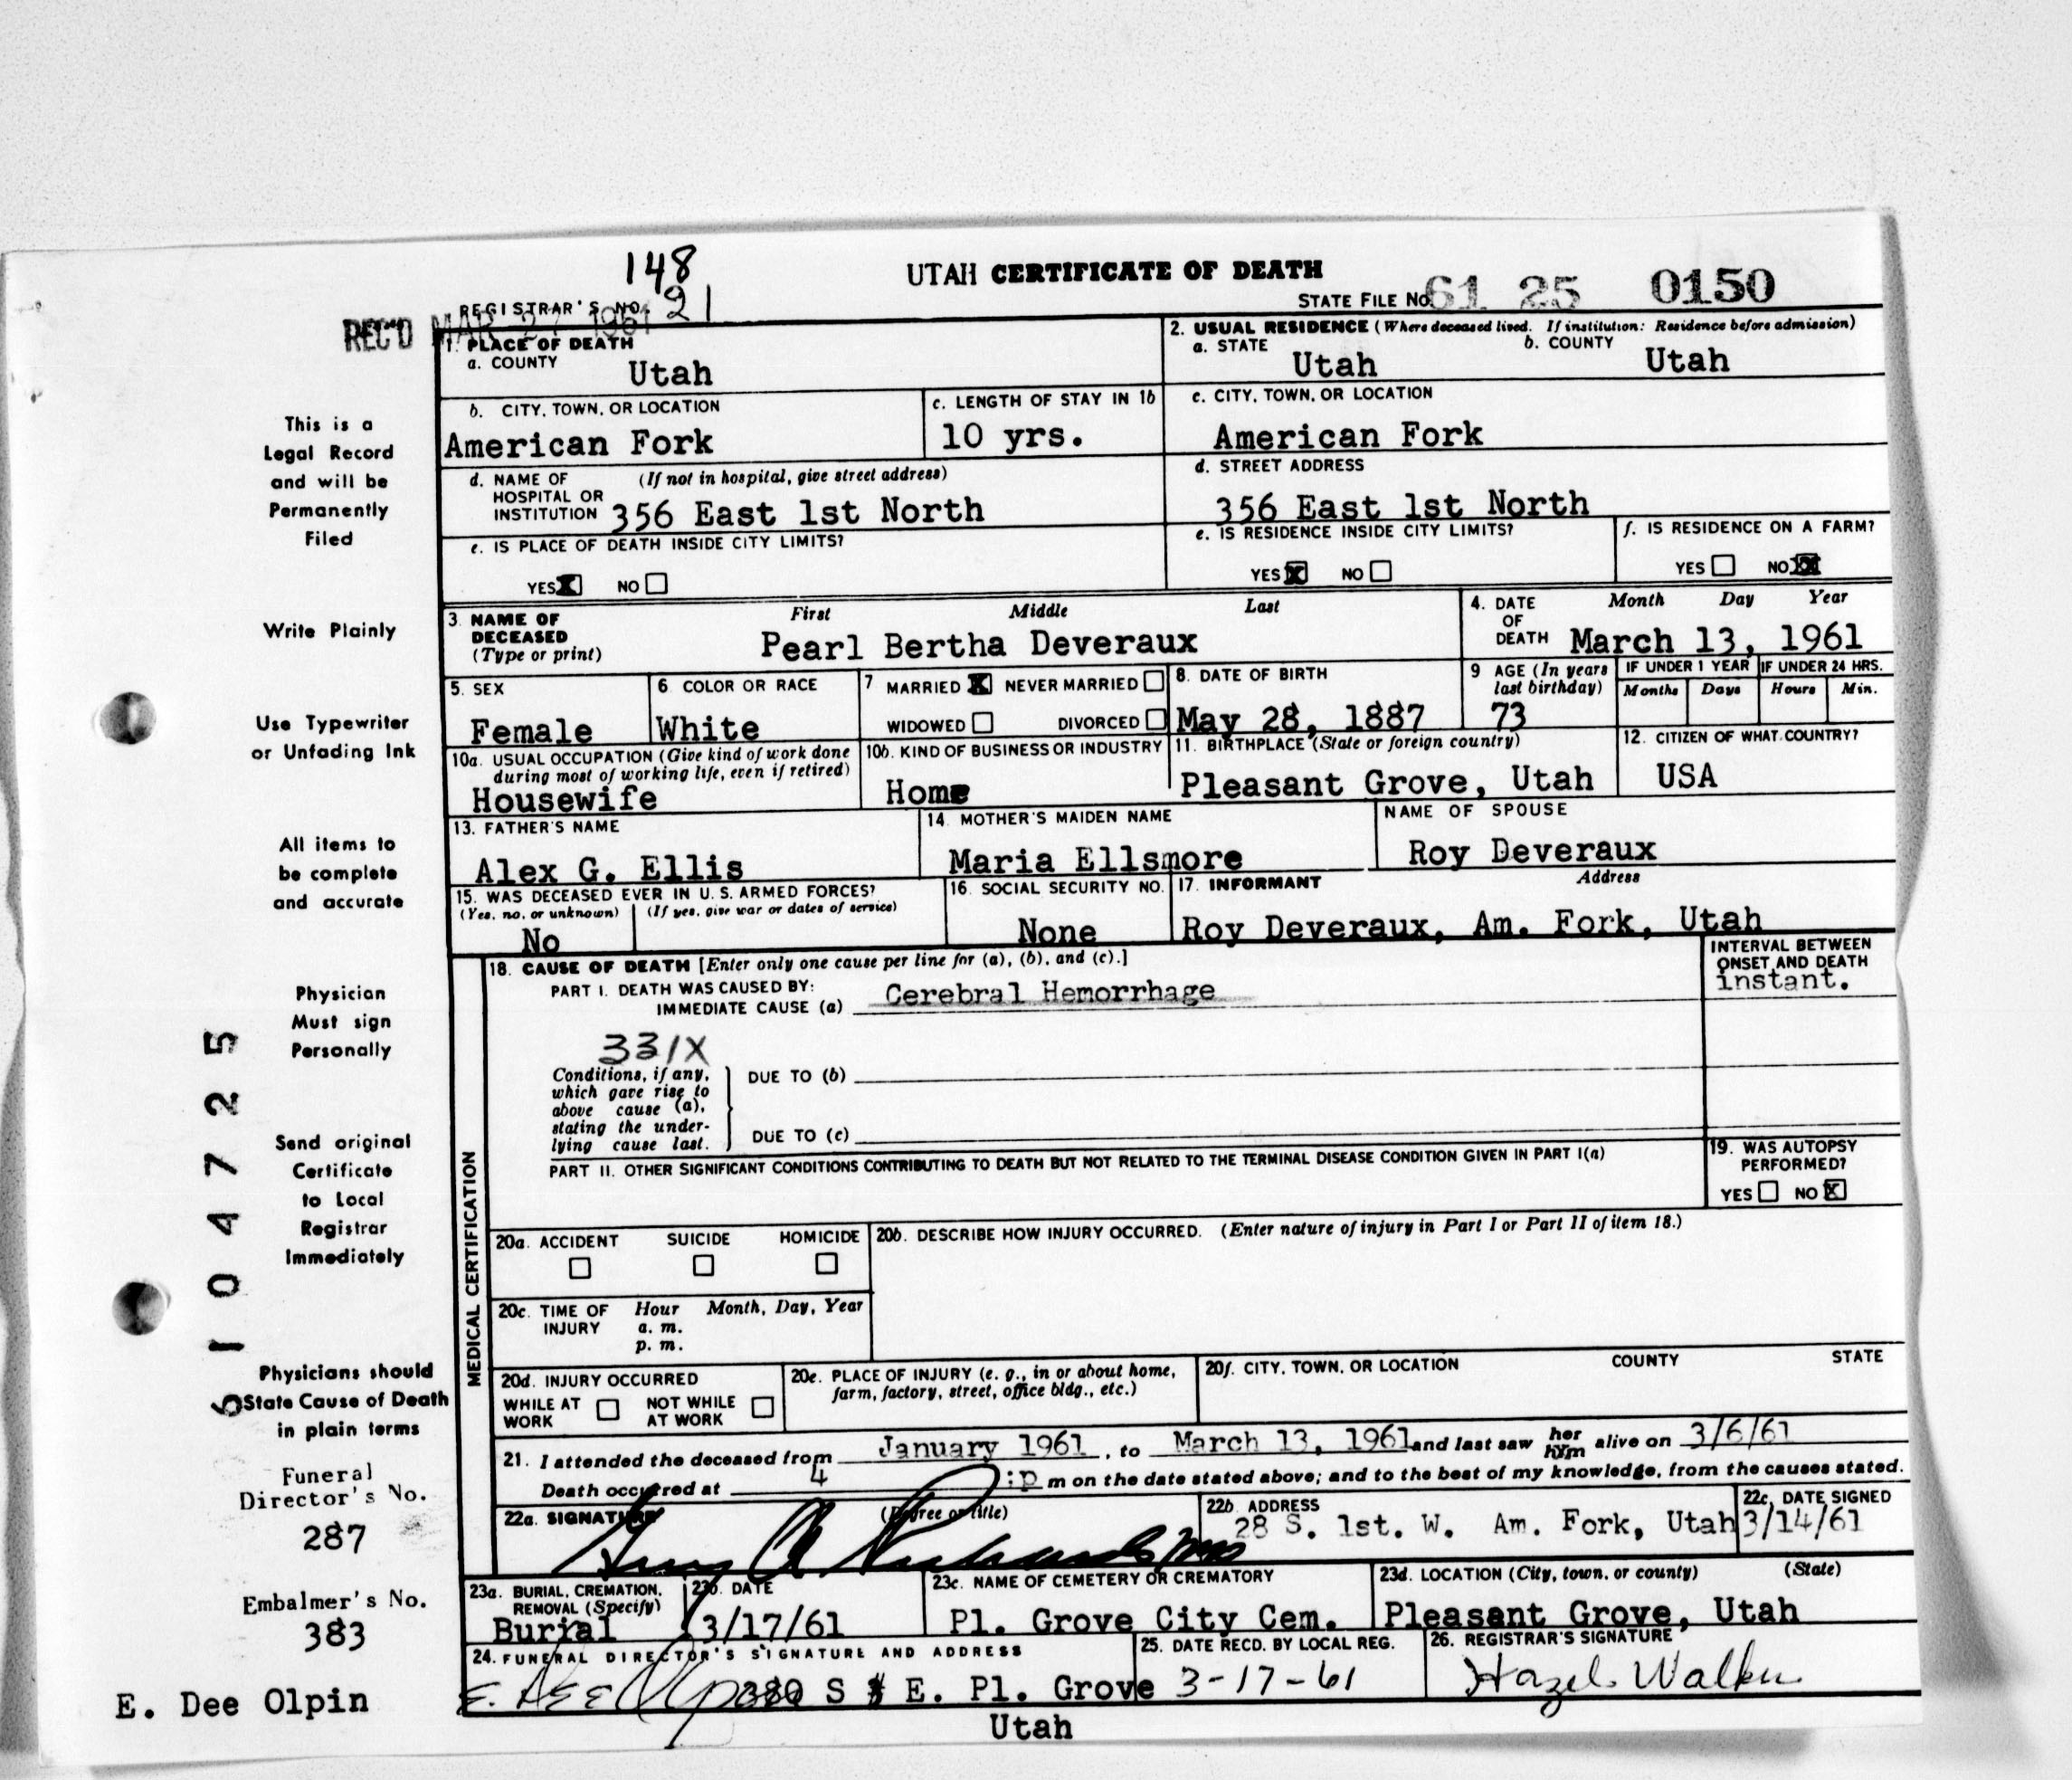 148
UTAH CERTIFICATE OF DEATH
REGISTRAR'S NO. 21
STATE FILE NO. 61 25 0150
REC'D MAR 27 1961
1. PLACE OF DEATH
a. COUNTY
Utah
2. USUAL RESIDENCE (Where deceased lived. If institution: Residence before admission)
a. STATE
Utah
b. COUNTY
Utah
b. CITY, TOWN, OR LOCATION
American Fork
c. LENGTH OF STAY IN 1b
10 yrs.
c. CITY, TOWN, OR LOCATION
American Fork
d. NAME OF HOSPITAL OR INSTITUTION
(If not in hospital, give street address)
356 East 1st North
d. STREET ADDRESS
356 East 1st North
e. IS PLACE OF DEATH INSIDE CITY LIMITS?
YES X NO
e. IS RESIDENCE INSIDE CITY LIMITS?
YES X NO
f. IS RESIDENCE ON A FARM?
YES NO X
3. NAME OF DECEASED (Type or print)
First Middle Last
Pearl Bertha Deveraux
4. DATE OF DEATH
Month Day Year
March 13, 1961
5. SEX
Female
6. COLOR OR RACE
White
7 MARRIED X NEVER MARRIED
WIDOWED DIVORCED
8. DATE OF BIRTH
May 28, 1887
9 AGE (In years last birthday)
73
IF UNDER 1 YEAR
Months Days
IF UNDER 24 HRS.
Hours Min.
10a. USUAL OCCUPATION (Give kind of work done during most of working life, even if retired)
Housewife
10b. KIND OF BUSINESS OR INDUSTRY
Home
11. BIRTHPLACE (State or foreign country)
Pleasant Grove, Utah
12. CITIZEN OF WHAT COUNTRY?
USA
13. FATHER'S NAME
Alex G. Ellis
14. MOTHER'S MAIDEN NAME
Maria Ellsmore
NAME OF SPOUSE
Roy Deveraux
15. WAS DECEASED EVER IN U. S. ARMED FORCES?
(Yes, no, or unknown) (If yes, give war or dates of service)
No
16. SOCIAL SECURITY NO.
None
17. INFORMANT Address
Roy Deveraux, Am. Fork, Utah
MEDICAL CERTIFICATION
18. CAUSE OF DEATH [Enter only one cause per line for (a), (b), and (c).]
PART I. DEATH WAS CAUSED BY:
IMMEDIATE CAUSE (a) Cerebral Hemorrhage
INTERVAL BETWEEN ONSET AND DEATH
instant.
331X
Conditions, if any, which gave rise to above cause (a), stating the underlying cause last.
DUE TO (b)
DUE TO (c)
PART II. OTHER SIGNIFICANT CONDITIONS CONTRIBUTING TO DEATH BUT NOT RELATED TO THE TERMINAL DISEASE CONDITION GIVEN IN PART I(a)
19. WAS AUTOPSY PERFORMED?
YES NO X
20a. ACCIDENT SUICIDE HOMICIDE
20b. DESCRIBE HOW INJURY OCCURRED. (Enter nature of injury in Part I or Part II of item 18.)
20c. TIME OF INJURY
Hour Month, Day, Year
a. m.
p. m.
20d. INJURY OCCURRED
WHILE AT WORK NOT WHILE AT WORK
20e. PLACE OF INJURY (e. g., in or about home, farm, factory, street, office bldg., etc.)
20f. CITY, TOWN, OR LOCATION COUNTY STATE
21. I attended the deceased from January 1961, to March 13, 1961 and last saw her him alive on 3/6/61
Death occurred at 4 :p m on the date stated above; and to the best of my knowledge, from the causes stated.
22a. SIGNATURE (Degree or title)
22b. ADDRESS
28 S. 1st. W. Am. Fork, Utah
22c. DATE SIGNED
3/14/61
23a. BURIAL, CREMATION, REMOVAL (Specify)
Burial
23b. DATE
3/17/61
23c. NAME OF CEMETERY OR CREMATORY
Pl. Grove City Cem.
23d. LOCATION (City, town, or county) (State)
Pleasant Grove, Utah
24. FUNERAL DIRECTOR'S SIGNATURE AND ADDRESS
E. Dee Olpin S E. Pl. Grove
Utah
25. DATE RECD. BY LOCAL REG.
3-17-61
26. REGISTRAR'S SIGNATURE
Hazel Walker
This is a
Legal Record
and will be
Permanently
Filed
Write Plainly
Use Typewriter
or Unfading Ink
All items to
be complete
and accurate
Physician
Must sign
Personally
Send original
Certificate
to Local
Registrar
Immediately
Physicians should
State Cause of Death
in plain terms
5104725
Funeral
Director's No.
287
Embalmer's No.
383
E. Dee Olpin